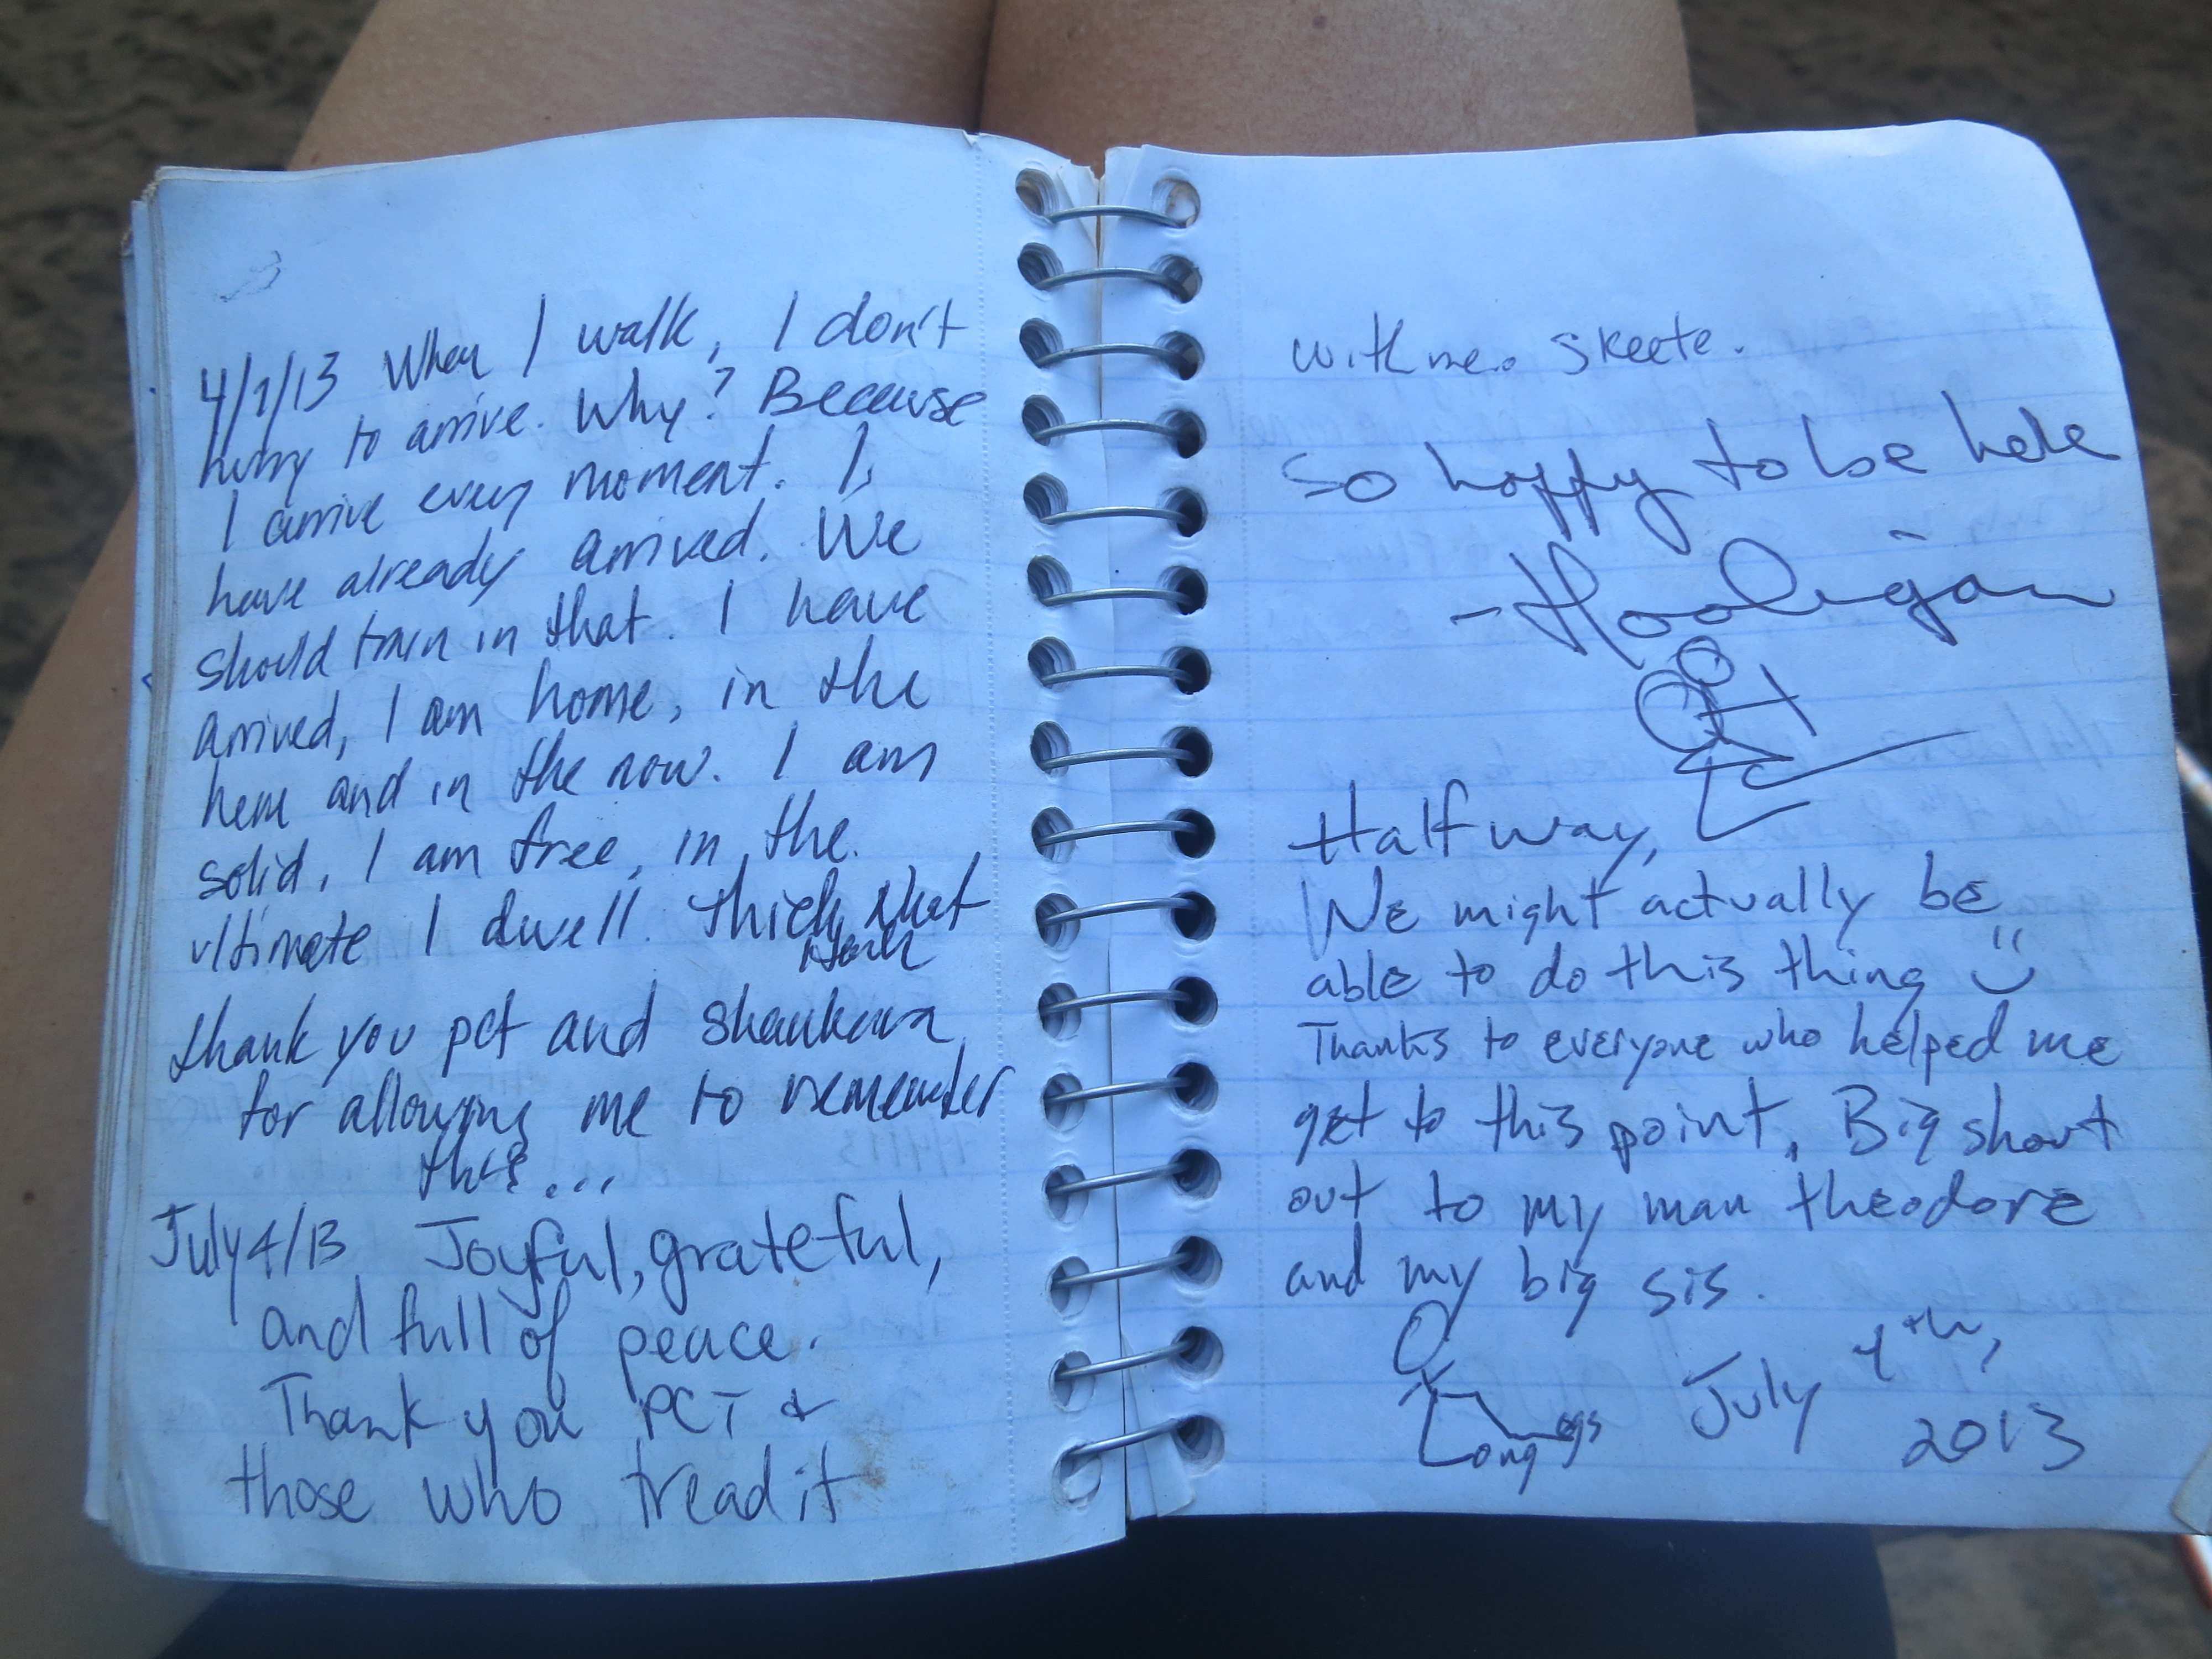 4/7/13 When I walk, I don't
hurry to arrive. Why? Because
I arrive every moment. I
have already arrived. We
should train in that. I have
arrived, I am home, in the
here and in the now. I am
solid, I am free, in the
ultimate I dwell. Thich Nhat
Hanh
thank you pct and shankara
for allowing me to remember
this...
July 4/13 Joyful, grateful,
and full of peace.
Thank you PCT &
those who tread it
with me. Skeete.
so happy to be here
- Hooligan
Halfway,
We might actually be
able to do this thing
Thanks to everyone who helped me
get to this point, Big shout
out to my man theodore
and my big sis.
Long Legs July 4th,
2013